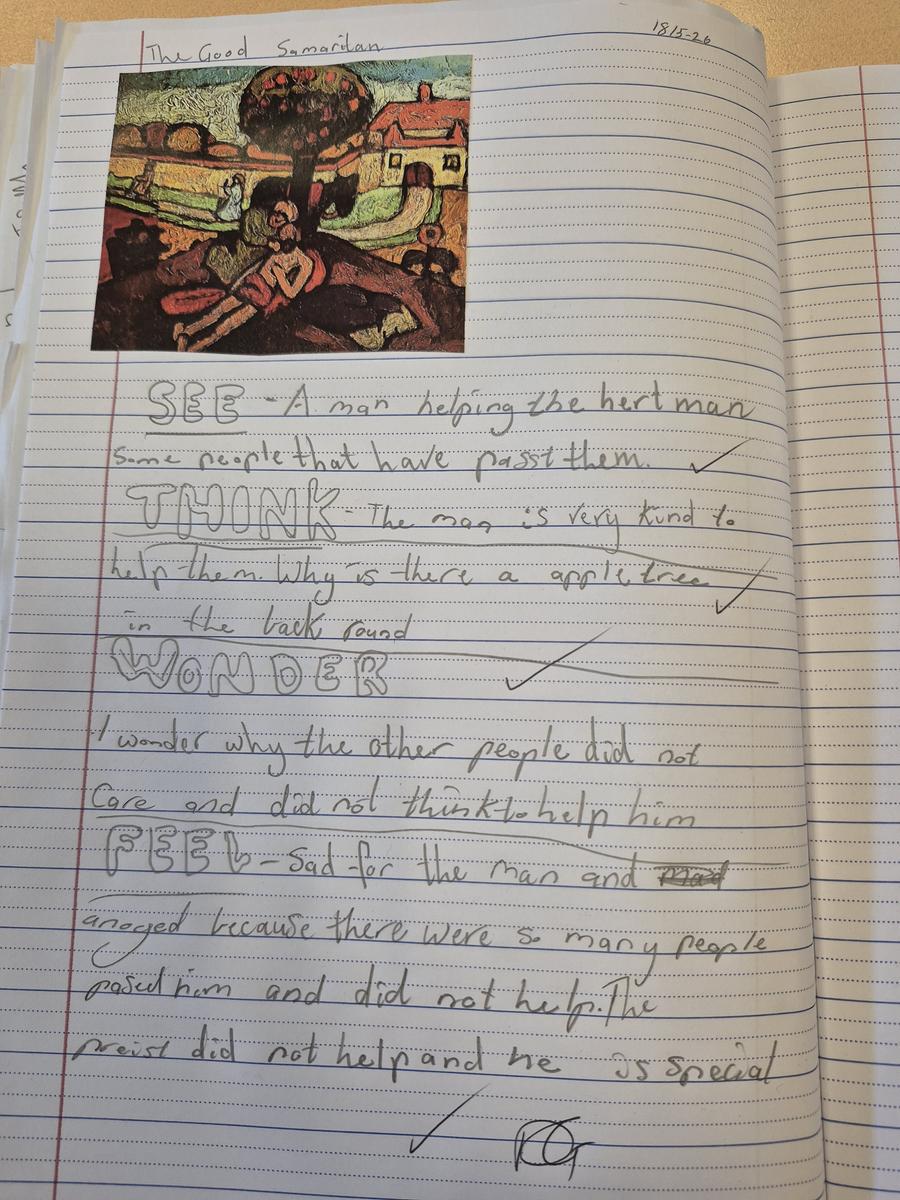 18/5-26
The Good Samaritan
SEE - A man helping the hert man
Some people that have passt them.
THINK - The man is very kind to
help them. Why is there a apple tree
in the back round
WONDER
I wonder why the other people did not
Care and did not think to help him
FEEL - Sad for the man and
anoyed because there were so many people
pased him and did not help. The
preist did not help and he is special